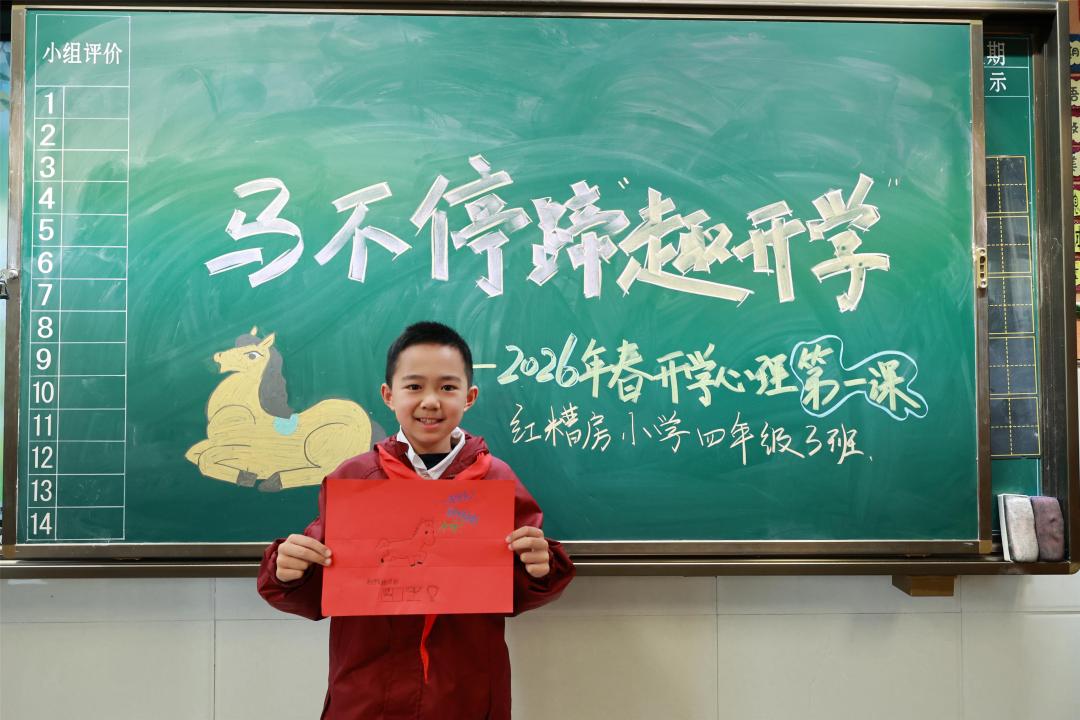 小组评价
1
2
3
4
5
6
7
8
9
10
11
12
13
14
马不停蹄“趣开学”
—2026年春开学心班第一课
红糟房小学四年级3班.
期
示